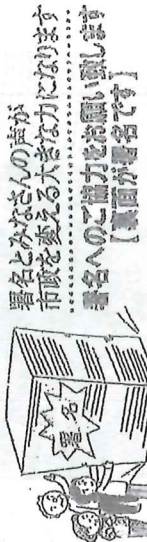 署名とみなさんの声が
市政を変える大きな力になります
署名へのご協力をお願い致します
【裏面が署名です】
署名